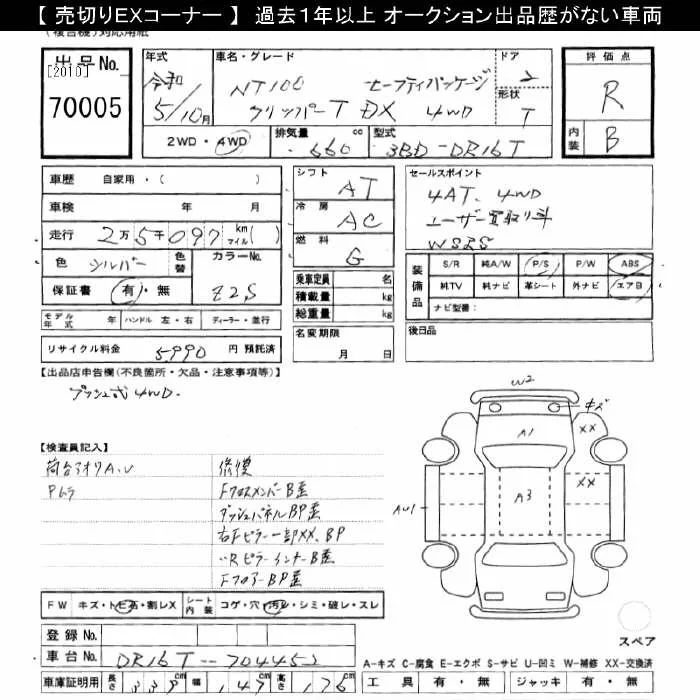 【 売切りEXコーナー 】 過去1年以上 オークション出品歴がない車両
出品No.
[2010]
70005
年式
令和
5/10月
車名・グレード
NT100 セーフティパッケージ
クリッパーT DX 4WD
ドア
2
形状
T
評価点
R
内装
B
2WD・4WD
排気量 cc
660
型式
3BD-DR16T
車歴 自家用・( )
車検 年 月
走行 2万5千097 km マイル( )
色 シルバー
色替
カラーNo.
Z2S
保証書 有・無
モデル年式 年 ハンドル 左・右 ディーラー・並行
リサイクル料金 5,990 円 預託済
シフト
AT
冷房
AC
燃料
G
乗車定員 名
積載量 kg
総重量 kg
名変期限
月 日
セールスポイント
4AT、4WD
ユーザー買取り車
WSRS
装備品
S/R 純A/W P/S P/W ABS
純TV 純ナビ 革シート 外ナビ エアB
ナビ型番:
後日品
【出品店申告欄(不良箇所・欠品・注意事項等)】
プッシュ式4WD.
【検査員記入】
荷台アオリA、U
Pムラ
修復
FクロスメンバーB歪
ダッシュパネルBP歪
右Fピラー一部XX、BP
〃RピラーインナーB歪
FフロアーBP歪
W2
キズ
XX
A1
A3
XX
AU1
スペア
FW キズ・トビ石・割レX
シート内装 コゲ・穴・汚レ・シミ・破レ・スレ
登録No.
車台No. DR16T-704452
車庫証明用 長さ 339cm 幅 147cm 高さ 176cm
A-キズ C-腐食 E-エクボ S-サビ U-凹ミ W-補修 XX-交換済
工具 有・無 ジャッキ 有・無